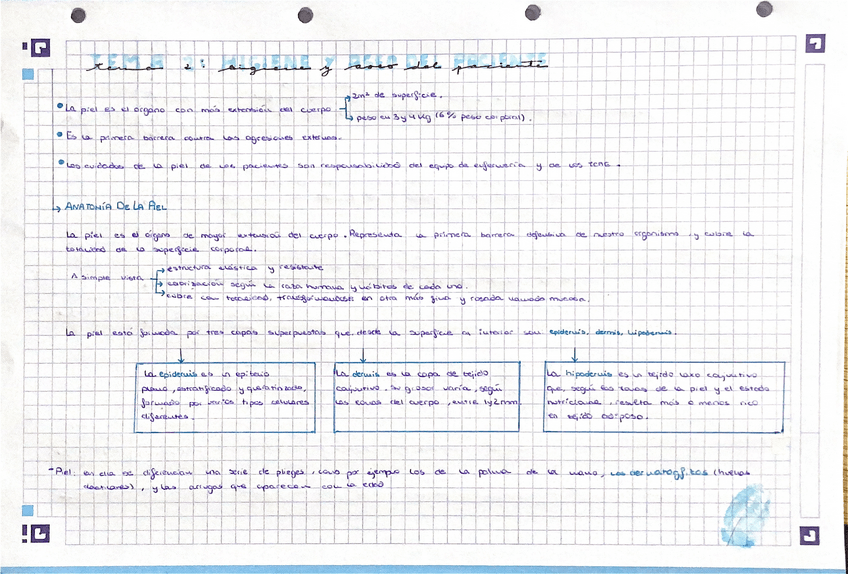 TEMA 2: HIGIENE Y ASEO DEL PACIENTE
tema 2: higiene y aseo del paciente
La piel es el organo con más extensión del cuerpo → 2m² de superficie.
→ peso en 3 y 4 kg (6% peso corporal).
Es la primera barrera contra las agresiones externas.
Los cuidados de la piel de los pacientes son responsabilidad del equipo de enfermería y de los TCAE.
→ ANATOMÍA DE LA PIEL
La piel es el órgano de mayor extensión del cuerpo. Representa la primera barrera defensiva de nuestro organismo, y cubre la
totalidad de la superficie corporal.
A simple vista → estructura elástica y resistente
→ coloración según la raza humana y hábitos de cada uno.
→ cubre con totalidad, transformandose en otra más fina y rosada llamada mucosa.
La piel está formada por tres capas superpuestas que, desde la superficie a interior son epidermis, dermis, hipodermis.
La epidermis es un epitelio
plano, estratificado y queratinizado,
formado por varios tipos celulares
diferentes.
La dermis es la capa de tejido
conjuntivo. Su grosor varía, según
las zonas del cuerpo, entre 1 y 2mm.
La hipodermis es un tejido laxo conjuntivo
que, según las zonas de la piel y el estado
nutricional, resulta más o menos rico
en tejido adiposo.
- Piel: en ella se diferencian una serie de pliegues, como por ejemplo los de la palma de la mano, los dermatoglifos (huellas
dactilares), y las arrugas que aparecen con la edad